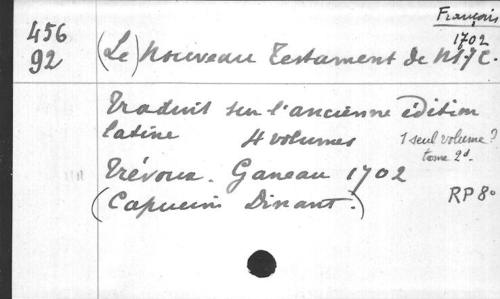 Français
1702
456
92
(Le) Nouveau Testament de NSJC.
Traduit sur l'ancienne édition
latine 4 volumes 1 seul volume?
tome 2d.
Trévoux. Ganeau 1702
(Capucins Dinant.)
RP 8°